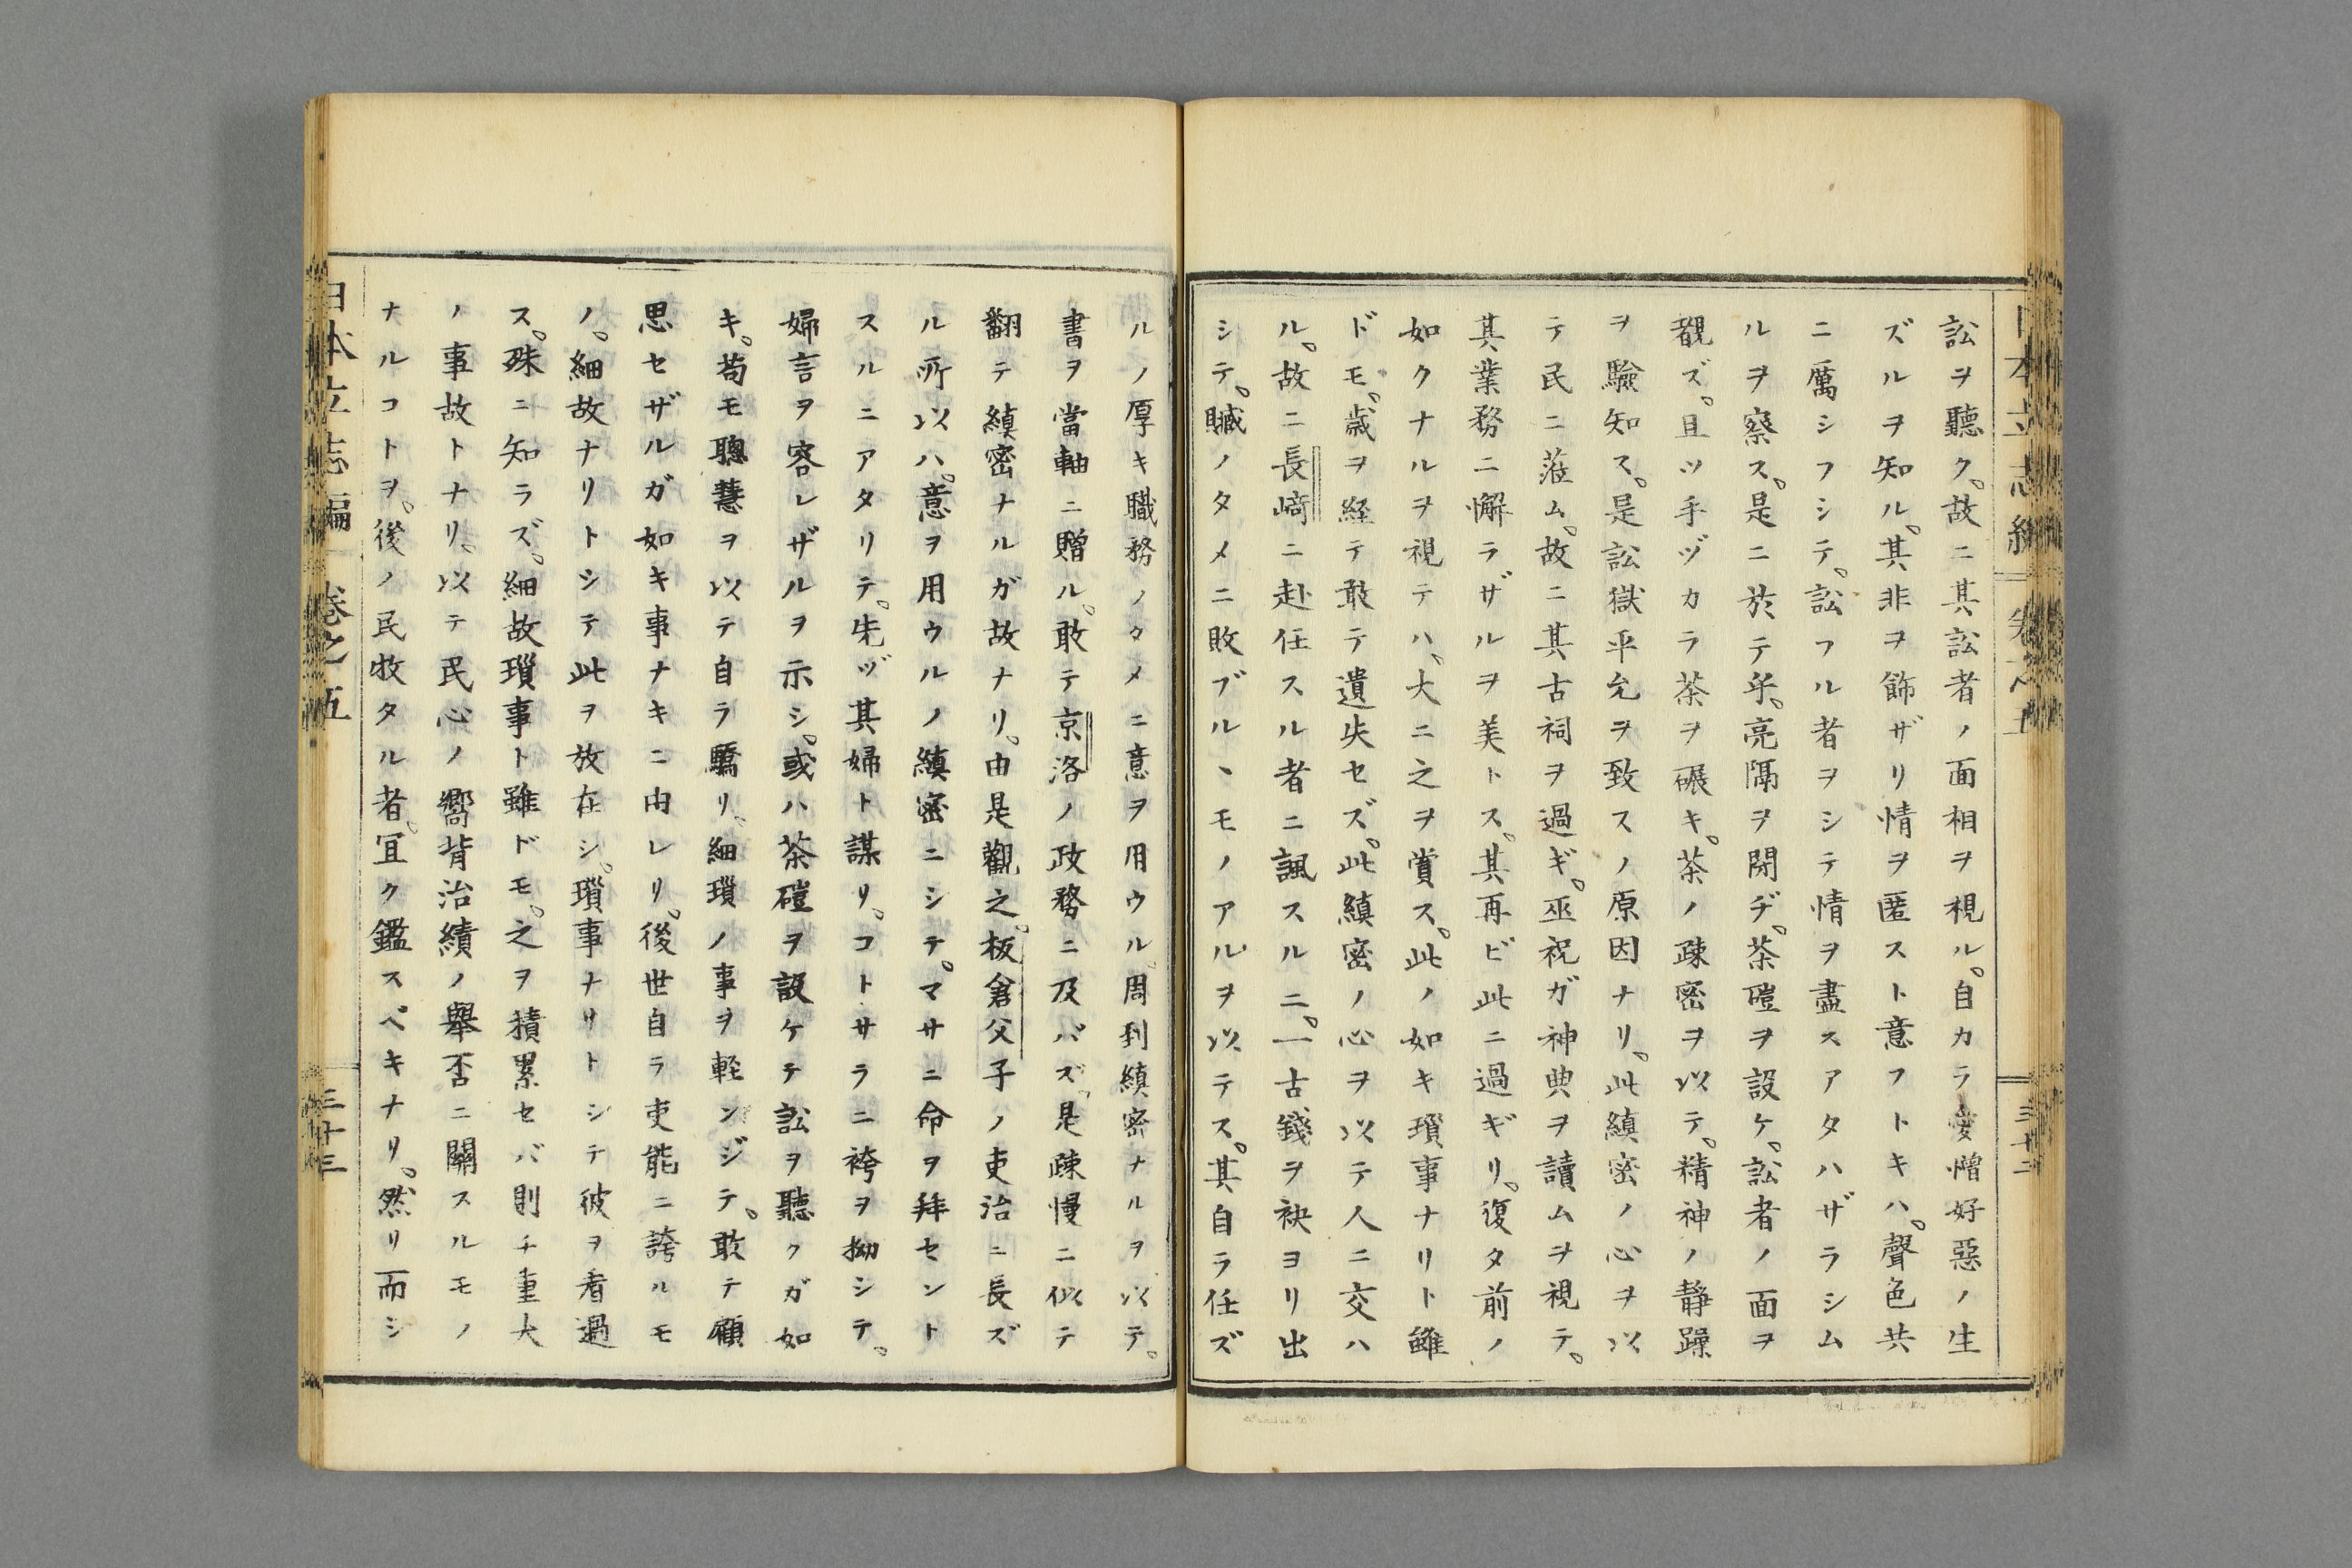 日本立志編 卷之五 三十二
訟ヲ聽ク。故ニ其訟者ノ面相ヲ視ル。自カラ愛憎好惡ノ生
ズルヲ知ル。其非ヲ飾ザリ情ヲ匿スト意フトキハ。聲色共
ニ厲シフシテ。訟フル者ヲシテ情ヲ盡スアタハザラシム
ルヲ察ス。是ニ於テ乎。亮隔ヲ閉ヂ。茶磑ヲ設ケ。訟者ノ面ヲ
覩ズ。且ツ手ヅカラ茶ヲ碾キ。茶ノ疎密ヲ以テ。精神ノ靜躁
ヲ驗知ス。是訟獄平允ヲ致スノ原因ナリ。此縝密ノ心ヲ以
テ民ニ蒞ム。故ニ其古祠ヲ過ギ。巫祝ガ神典ヲ讀ムヲ視テ。
其業務ニ懈ラザルヲ美トス。其再ビ此ニ過ギリ。復タ前ノ
如クナルヲ視テハ、大ニ之ヲ賞ス。此ノ如キ瑣事ナリト雖
ドモ。歳ヲ経テ敢テ遺失セズ。此縝密ノ心ヲ以テ人ニ交ハ
ル。故ニ長﨑ニ赴任スル者ニ諷スルニ。一古錢ヲ袂ヨリ出
シテ。贓ノタメニ敗ブルヽモノアルヲ以テス。其自ラ任ズ
ルノ厚キ職務ノタメニ意ヲ用ウル。周到縝密ナルヲ以テ。
書ヲ當軸ニ贈ル。敢テ京洛ノ政務ニ及バズ。是疎慢ニ似テ
翻テ縝密ナルガ故ナリ。由是觀之。板倉父子ノ吏治ニ長ズ
ル所以ハ。意ヲ用ウルノ縝密ニシテ。マサニ命ヲ拜セント
スルニアタリテ。先ヅ其婦ト謀リ。コトサラニ袴ヲ拗シテ。
婦言ヲ容レザルヲ示シ。或ハ茶磑ヲ設ケテ訟ヲ聽クガ如
キ。苟モ聰慧ヲ以テ自ラ驕リ。細瑣ノ事ヲ軽ンジテ。敢テ顧
思セザルガ如キ事ナキニ由レリ。後世自ラ吏能ニ誇ルモ
ノ。細故ナリトシテ此ヲ放在シ。瑣事ナリトシテ彼ヲ看過
ス。殊ニ知ラズ。細故瑣事ト雖ドモ。之ヲ積累セバ則チ重大
ノ事故トナリ。以テ民心ノ嚮背治績ノ舉否ニ關スルモノ
ナルコトヲ。後ノ民牧タル者。冝ク鑑スベキナリ。然リ而シ
日本立志編 卷之五 三十三